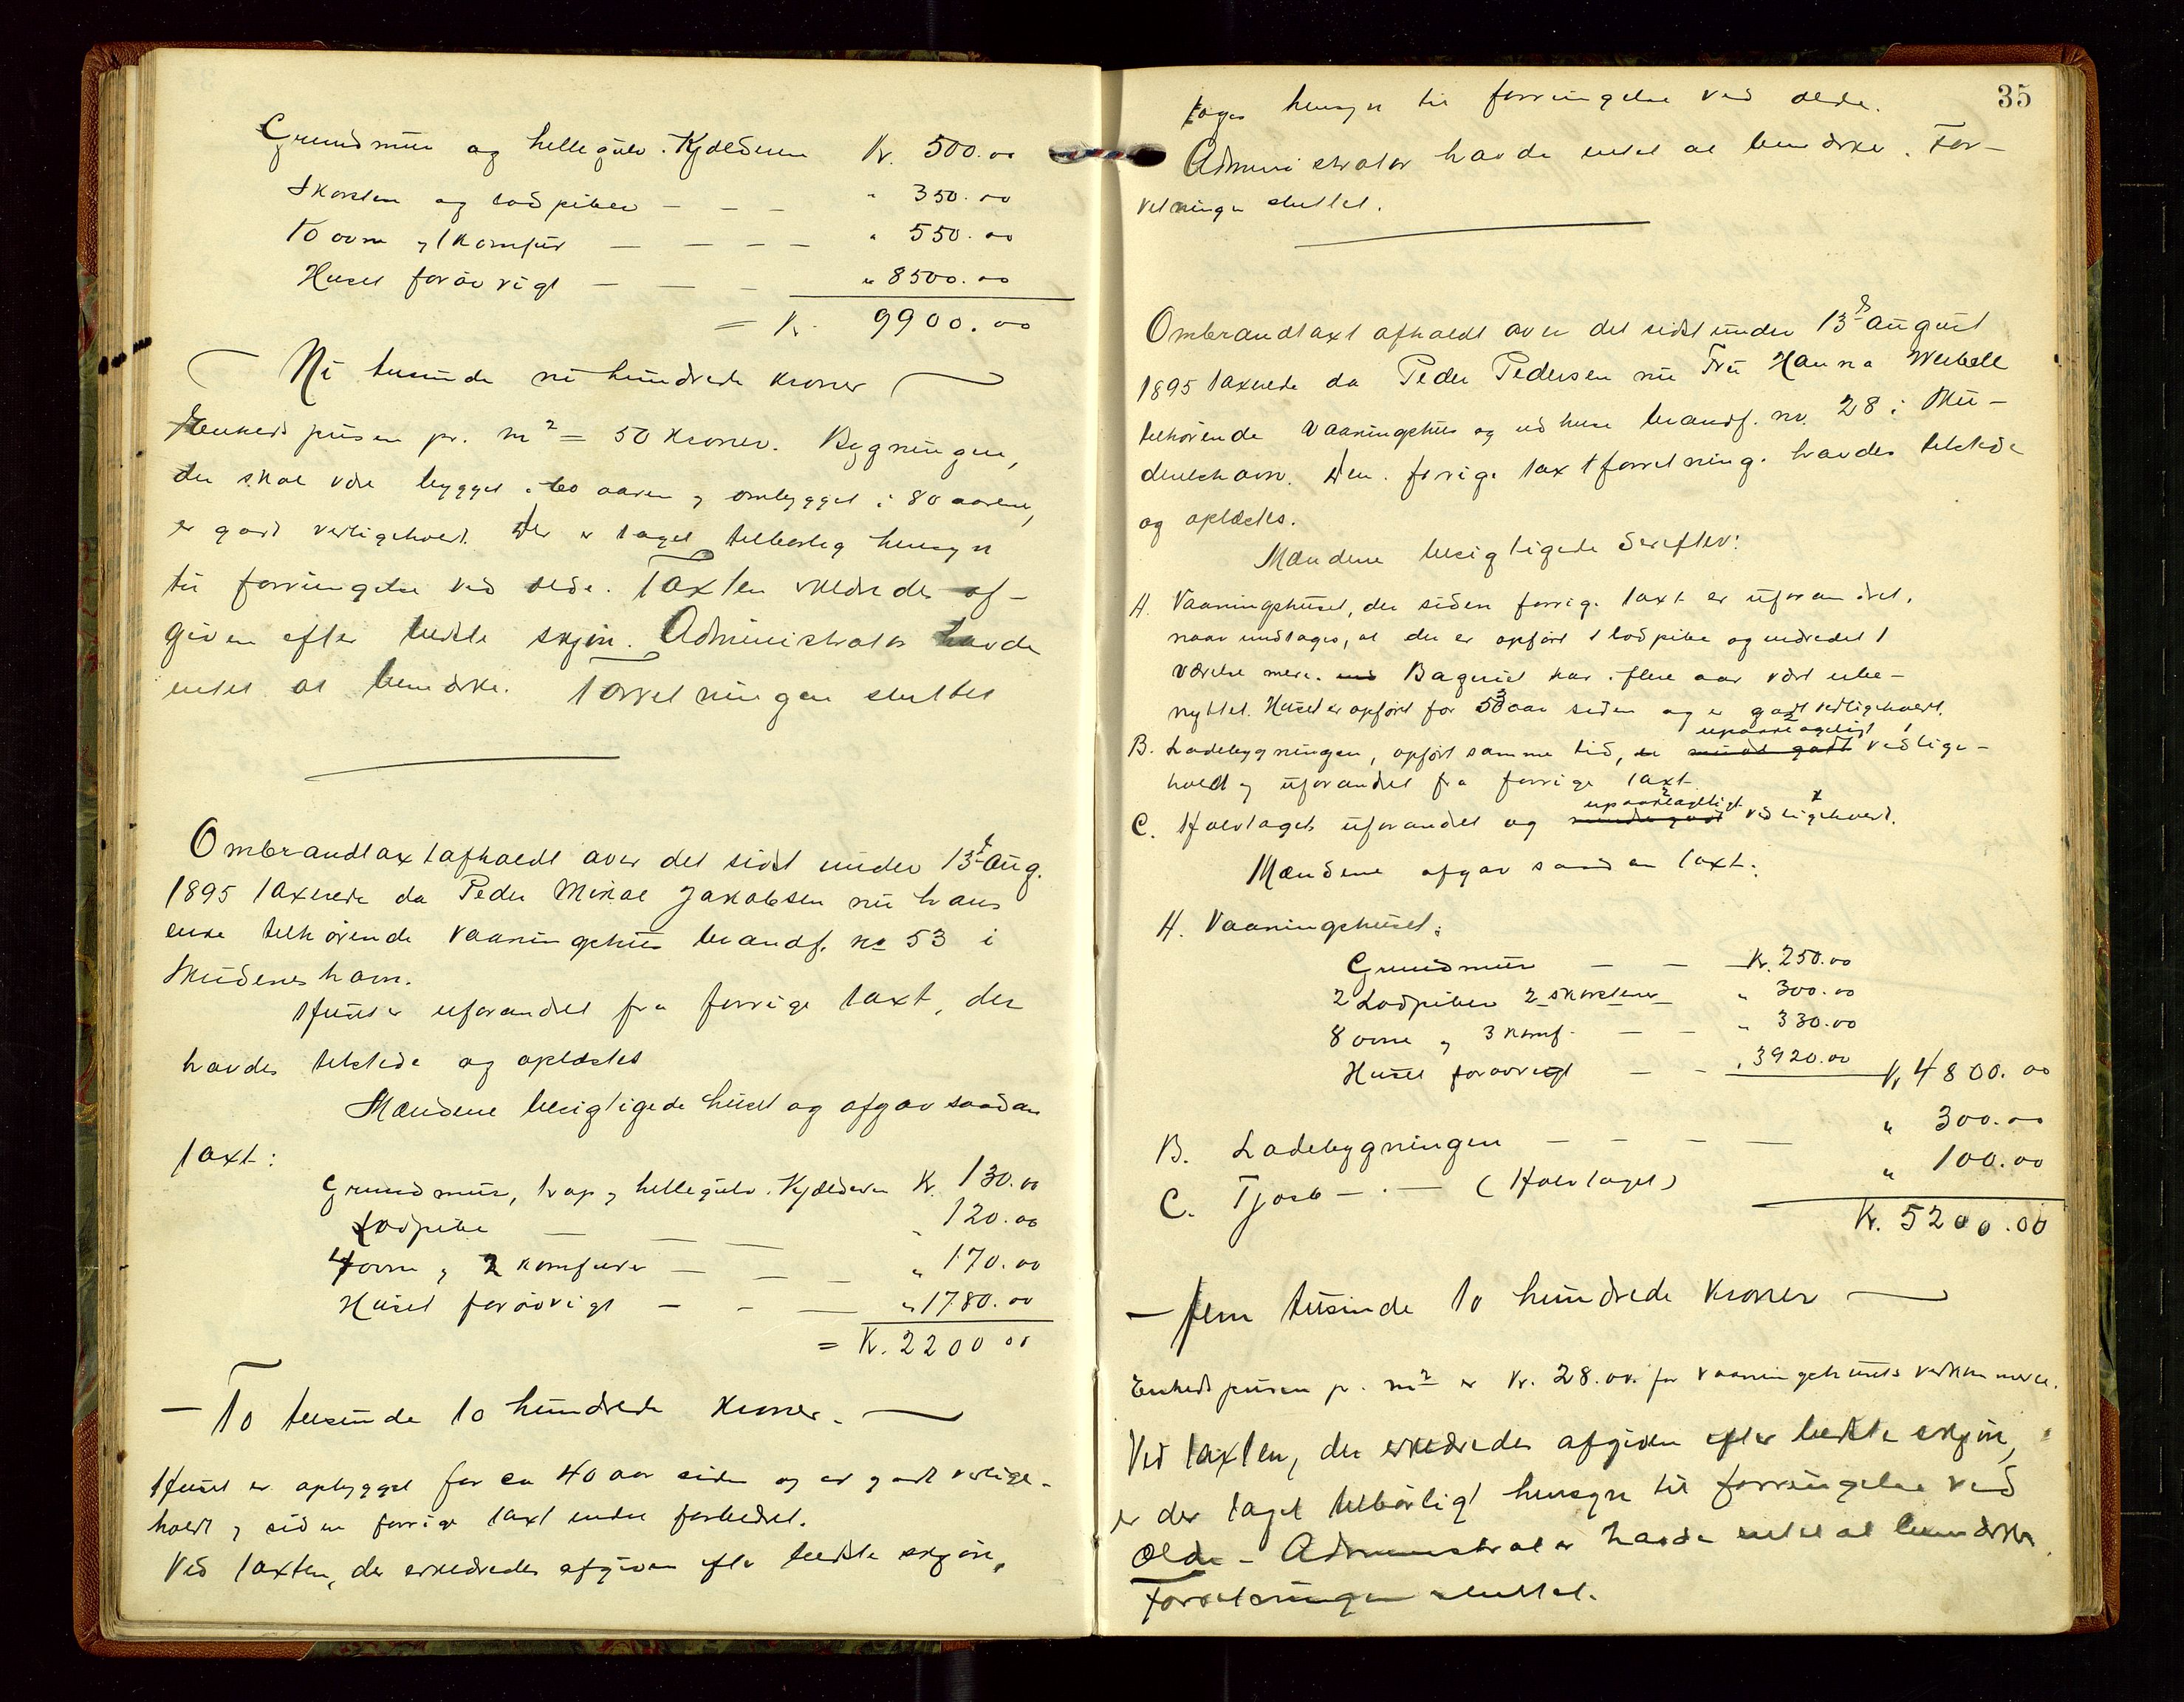 Grundmur og hellegulv i Kjælderen Kr. 500.00
Skorsten og lodpiber — — — " 350.00
10 ovne og 1 komfur — — — — " 550.00
Huset forøvrigt — — — " 8500.00
= Kr. 9900.00
Ni tusinde ni hundrede kroner
Enhedsprisen pr. m² = 50 Kroner. Bygningen,
der skal være bygget i 60 aaren og ombygget i 80 aarene,
er godt vedligeholdt. Der er taget tilbørlig hensyn
til forringelse ved ælde. Taxten erklæredes af-
given efter bedste skjøn. Administrator havde
intet at bemærke. Forretningen sluttet
Ombrandtaxt afholdt over det sidst under 13de Aug.
1895 taxerede da Peder Mikal Jakobsen nu hans
enke tilhørende Vaaningshus brandf. no 53 i
Skudeneshavn.
Huset er uforandret fra forrige taxt, der
havdes tilstede og oplæstes
Mændene besigtigede huset og afgav saadan
taxt:
Grundmur, trap og hellegulv i Kjælderen Kr. 130.00
Lodpibe — — — " 120.00
4 ovne og 2 komfurer — — — " 170.00
Huset forøvrigt — — — " 1780.00
= Kr. 2200 00
— To tusinde to hundrede Kroner. —
Huset er opbygget for ca 40 aar siden og er godt vedlige-
holdt og siden forrige taxt endu forbedret.
Ved taxten, der erklæredes afgiven efter bedste skjøn,
35
toges hensyn til forringelse ved ælde.
Administrator havde intet at bemærke. For-
retningen sluttet.
Ombrandtaxt afholdt over det sidst under 13de august
1895 taxerede da Peder Pedersen nu Fru Hanna Weibell
tilhørende Vaaningshus og udhuse brandf. no. 28 i Sku-
deneshavn. Den forrige taxtforretning havdes tilstede
og oplæstes.
Mændene besigtigede derefter:
A. Vaaningshuset, der siden forrige taxt er uforandret,
naar undtages, at der er opført 1 lodpibe og indredet 1
værelse mere. Baghuset har i flere aar vært ube-
nyttet. Huset er opført for 53 aar siden og er godt vedligeholdt.
upaaklageligt
B. Ladebygningen, opført samme tid, er mindre godt vedlige-
hold og uforandret fra forrige taxt
upaaklageligt
C. Halvtaget uforandret og mindre godt vedligeholdt.
Mændene afgav saadan taxt:
A. Vaaningshuset:
Grundmur — — Kr. 250.00
2 Lodpiber 2 skorstener " 300.00
8 ovne og 3 komf. — — " 330.00
Huset forøvrigt — — " 3920.00 Kr 4800.00
B. Ladebygningen — — — — " 300.00
C. Tjorb — . — (Halvtaget) " 100.00
Kr. 5200.00
— Fem tusinde to hundrede Kroner —
Enhedsprisen pr. m² er Kr. 28.00 for vaaningshusets vedkommende.
Ved taxten, der erklæredes afgiven efter bedste skjøn,
er der taget tilbørligt hensyn til forringelse ved
Ælde — Administrator havde intet at bemærke.
Forretningen sluttet.